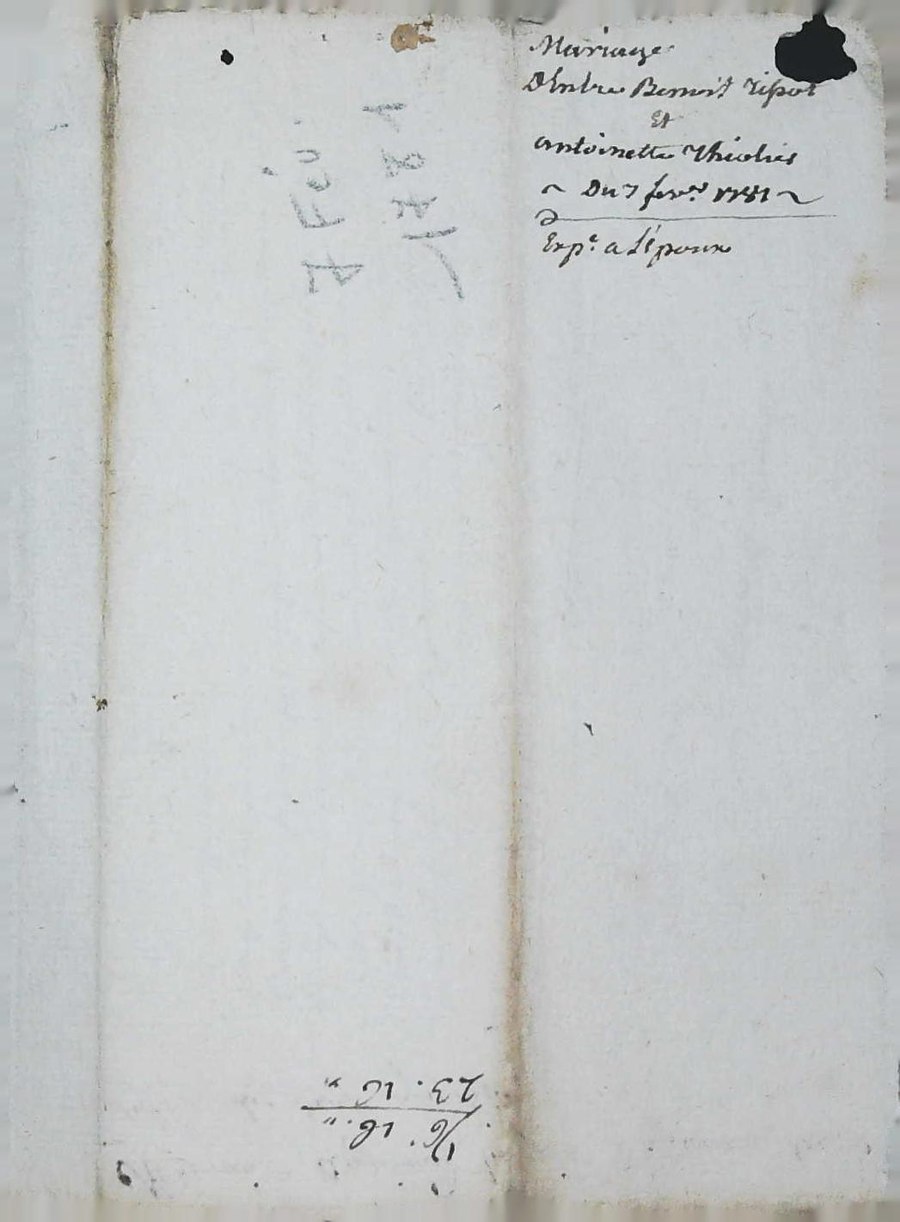 Mariage
D'Entre Benoit Tipot
Et
antoinette Thiolier
~ Du 7 fevr. 1781 ~
Exp.e a L'époux
7 Fév.
1781
16. 16. "
23. 16 "